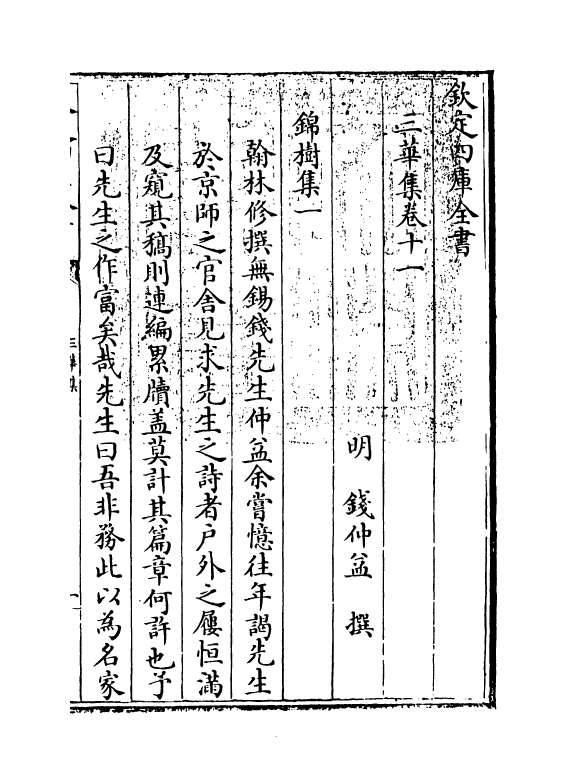 欽定四庫全書
三華集卷十一
明 錢仲益 撰
錦樹集一
翰林修撰無錫錢先生仲益余嘗憶往年謁先生
於京師之官舍見求先生之詩者户外之屨恒滿
及窺其稿則連編累牘盖莫計其篇章何許也予
曰先生之作富矣哉先生曰吾非務此以為名家
三華集
一